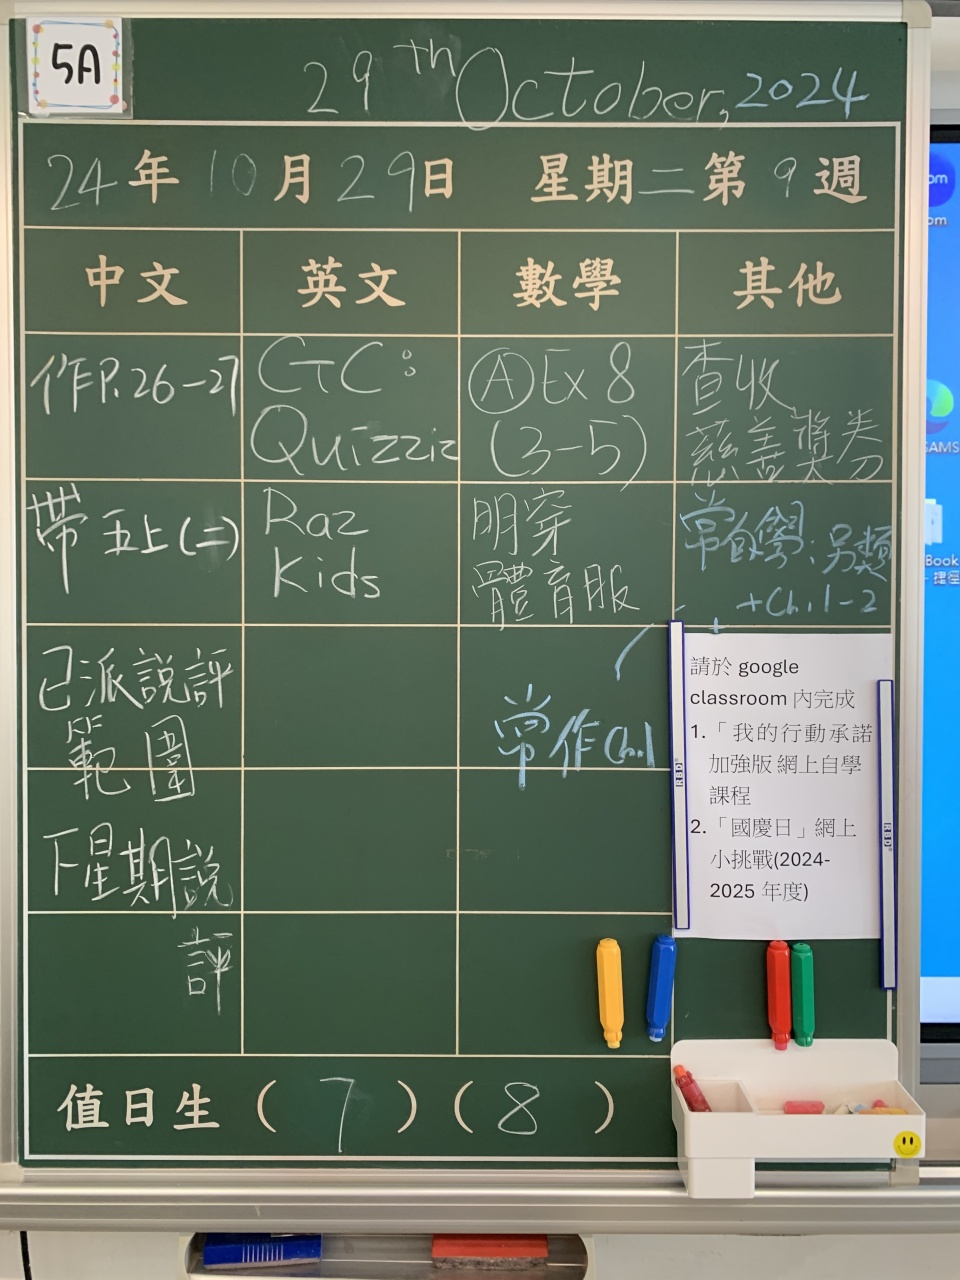 5A
29th October, 2024
24年10月29日 星期二第9週
中文 英文 數學 其他
作P.26-27
帶五上(二)
已派說評
範圍
下星期說
評
GTC:
Quizziz
Raz
Kids
Ⓐ Ex 8
(3-5)
明穿
體育服
常作Ch.1
查收
慈善獎券
常自學:另類
+Ch.1-2
請於 google
classroom 內完成
1.「我的行動承諾
加強版 網上自學
課程
2.「國慶日」網上
小挑戰(2024-
2025 年度)
值日生 ( 7 ) ( 8 )
om
om
SAMS
Book